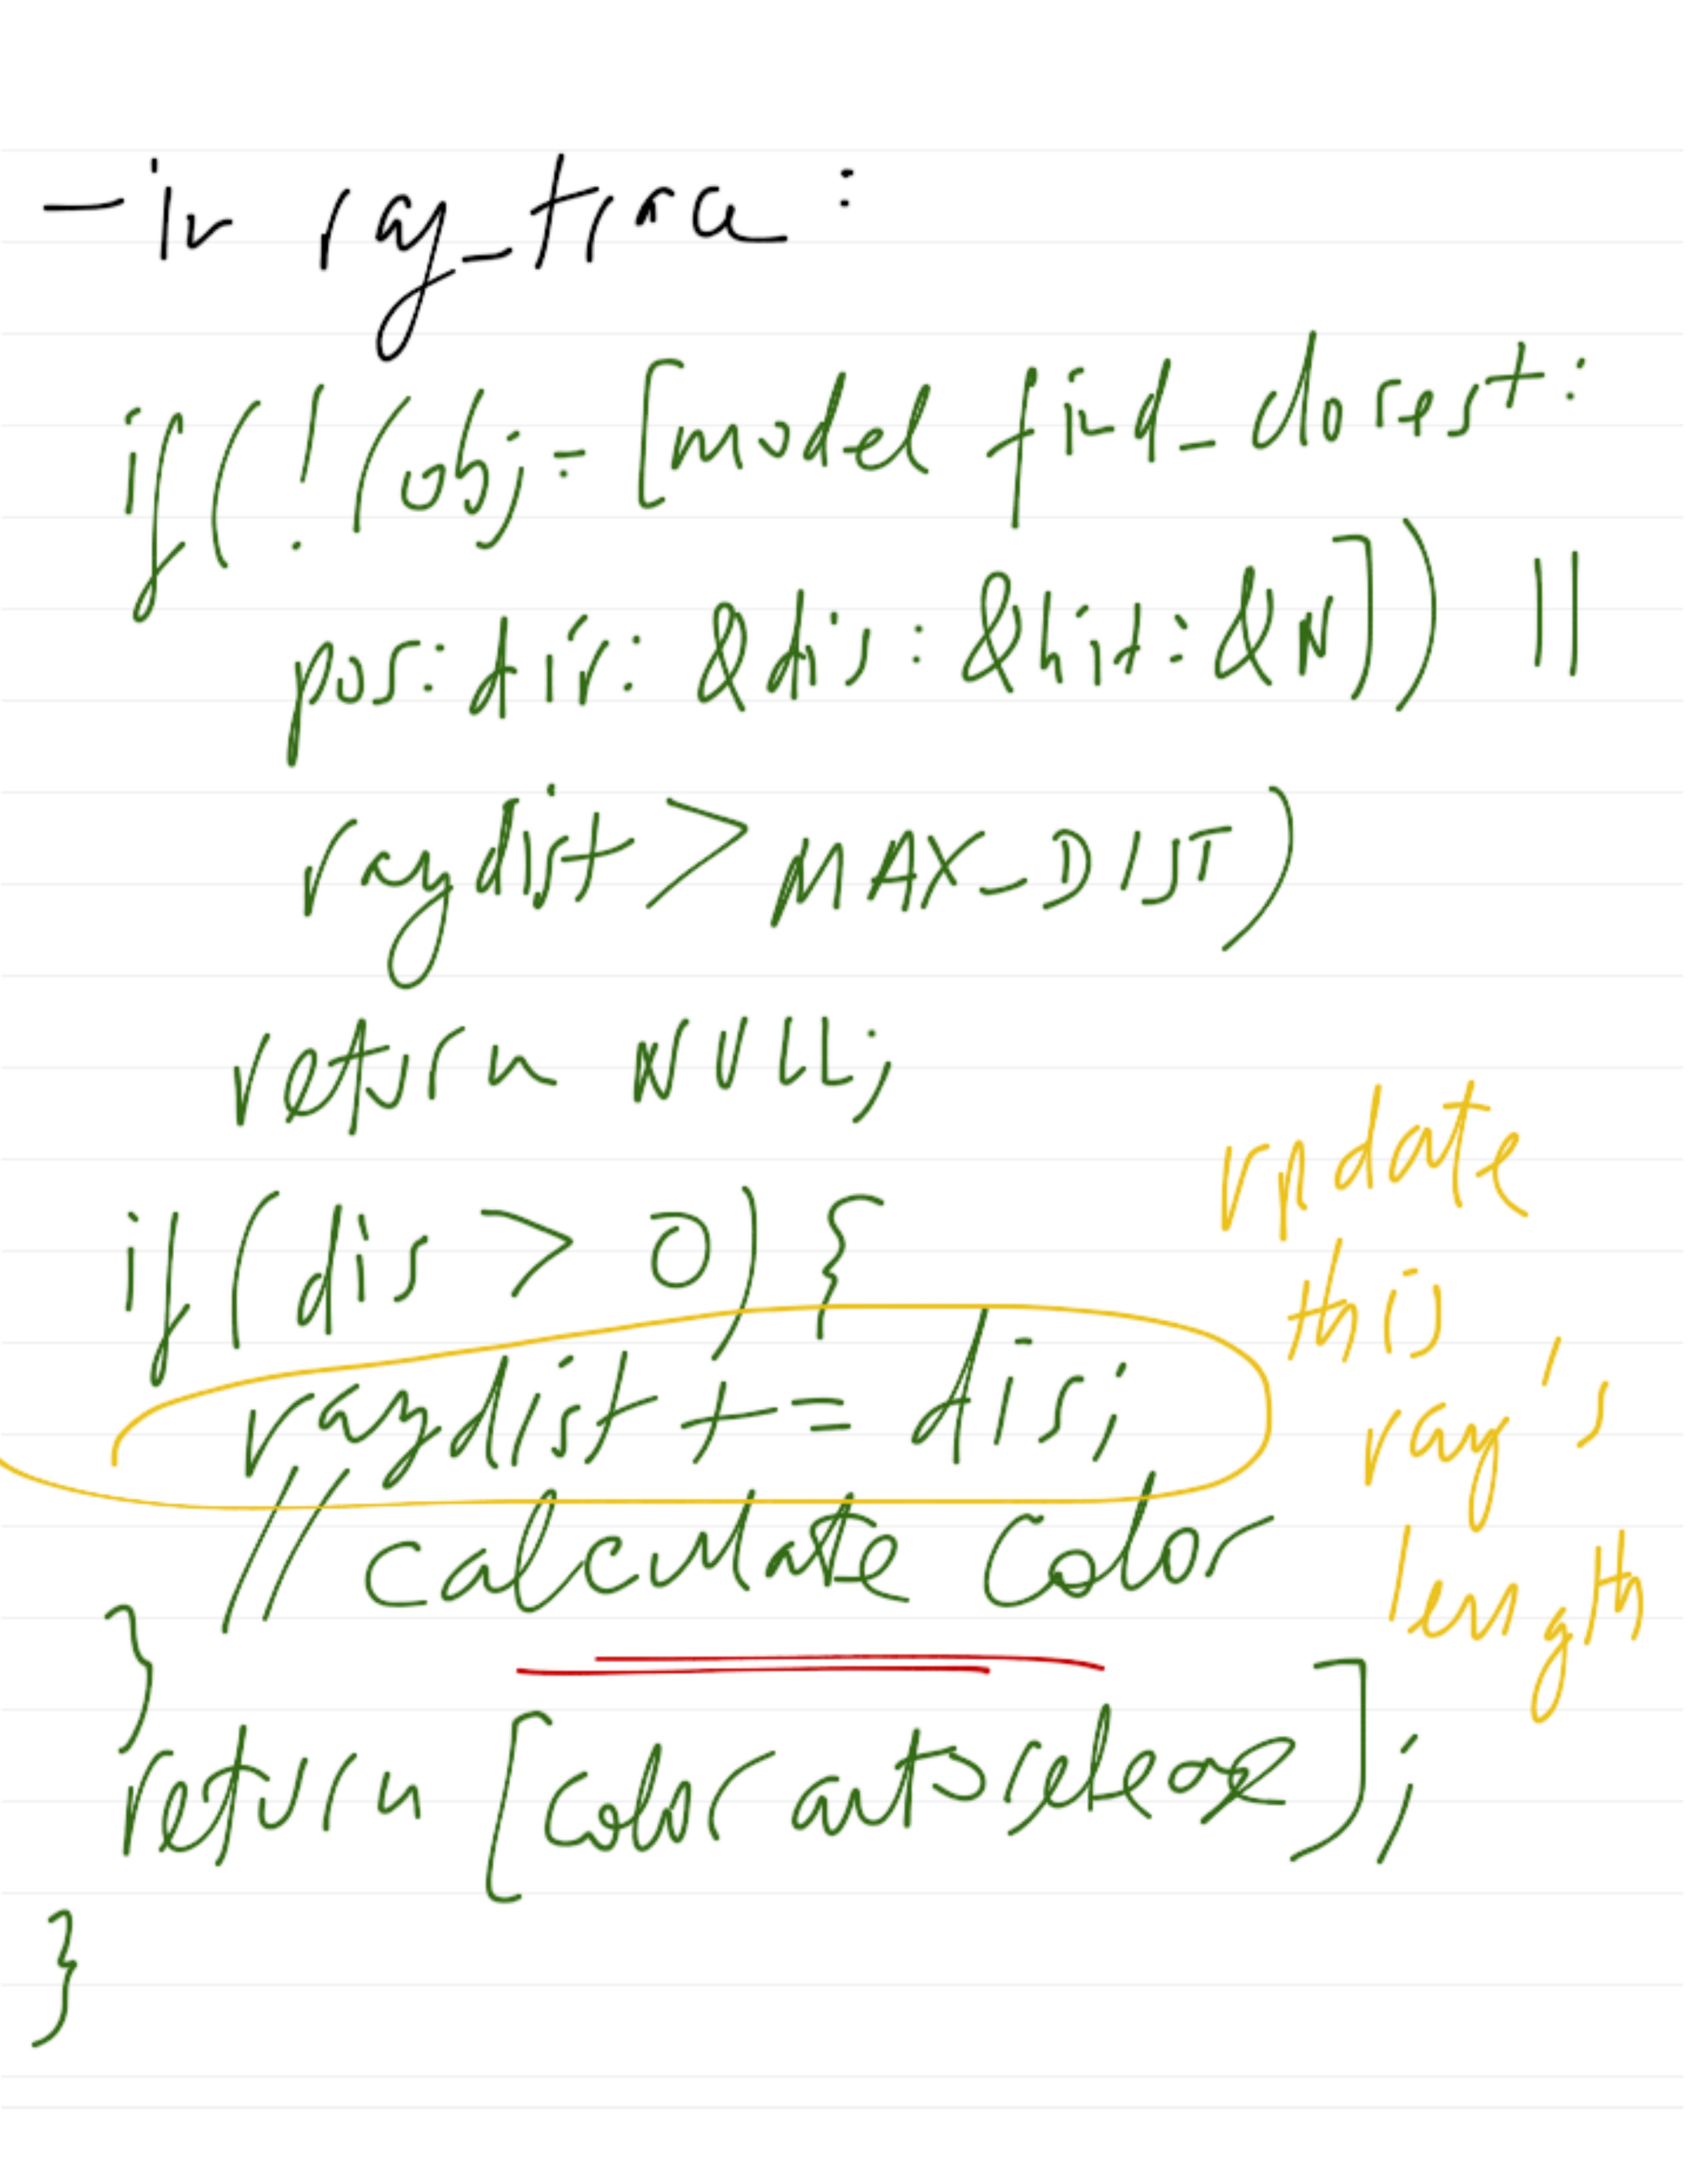 - in ray_trace:
if(!(obj = [model find_closest:
pos: dir: &dis: &hit: &N]) ||
raydist > MAX_DIST)
return NULL;
if(dis > 0){
raydist += dis;
// calculate color
}
return [color autorelease];
}
update
this
ray's
length